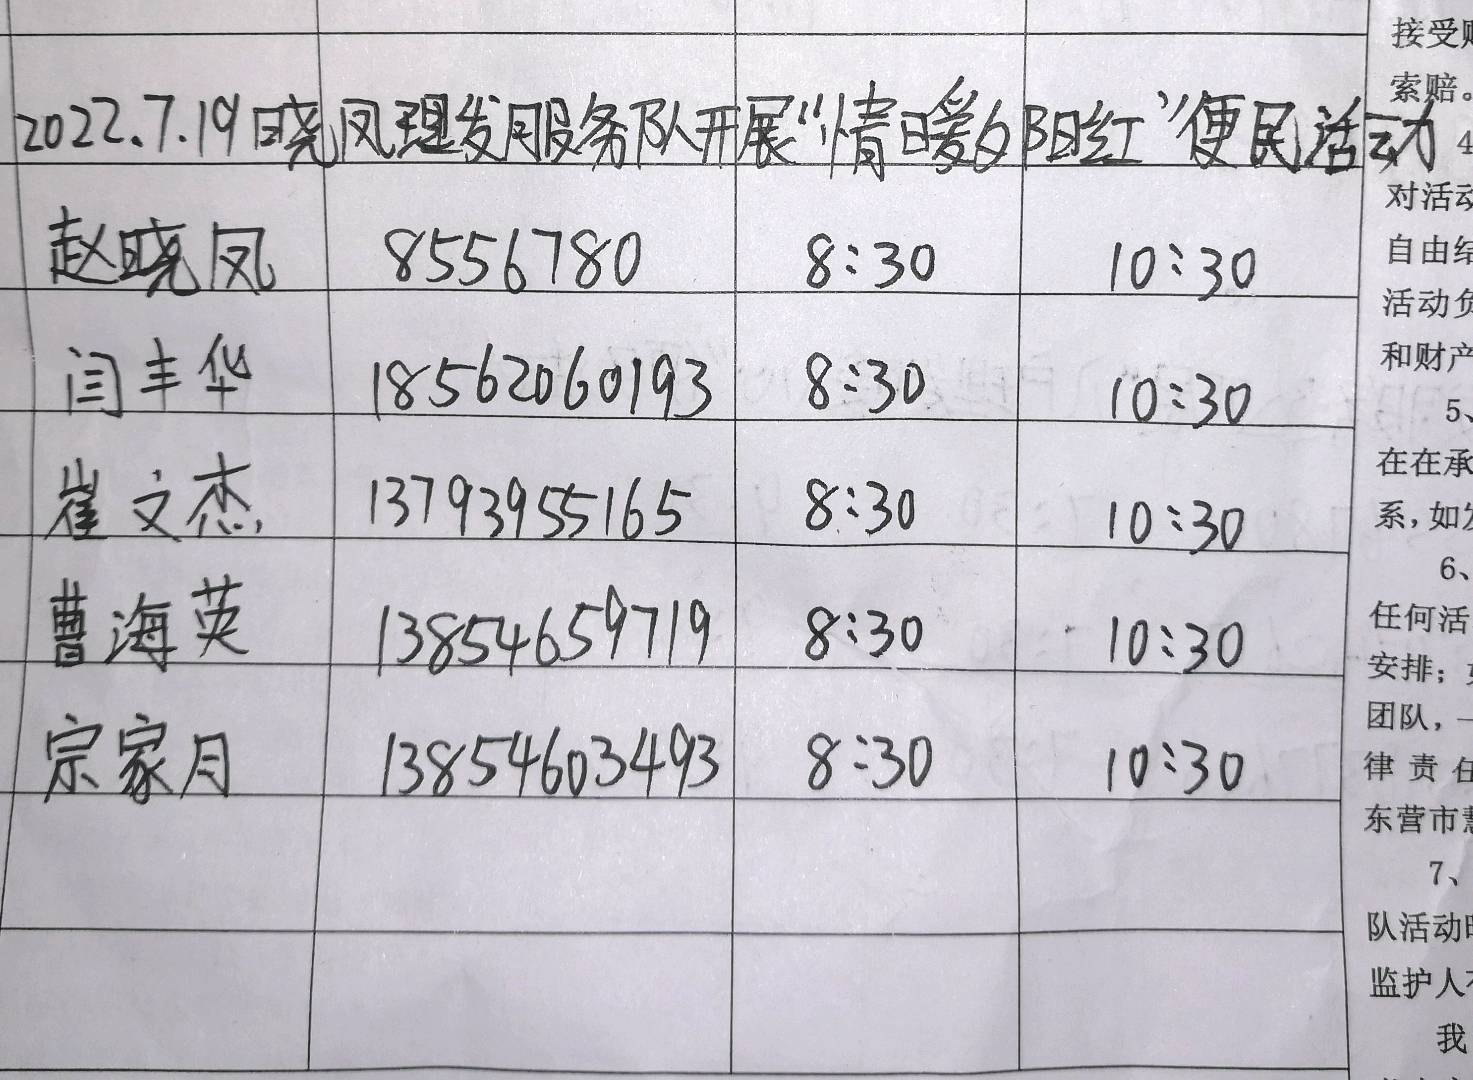 2022.7.19晓凤理发服务队开展“情暖夕阳红”便民活动
赵晓凤 8556780 8:30 10:30
闫丰华 18562060193 8:30 10:30
崔文杰 13793955165 8:30 10:30
曹海英 13854659719 8:30 10:30
宗家月 13854603493 8:30 10:30
接受
索赔。
4
对活动
自由结
活动负
和财产
5、
在在承
系,如发
6、
任何活
安排;
团队,
律责任
东营市慧
7、
队活动时
监护人
我